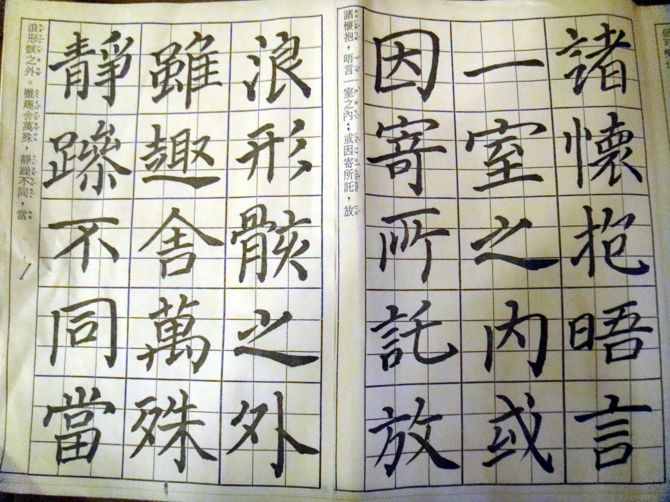 諸懷抱晤言
一室之內或
因寄所託放
諸懷抱，晤言一室之內；或因寄所託，放
浪形骸之外
雖趣舍萬殊
靜躁不同當
浪形骸之外。雖趣舍萬殊，靜躁不同，當